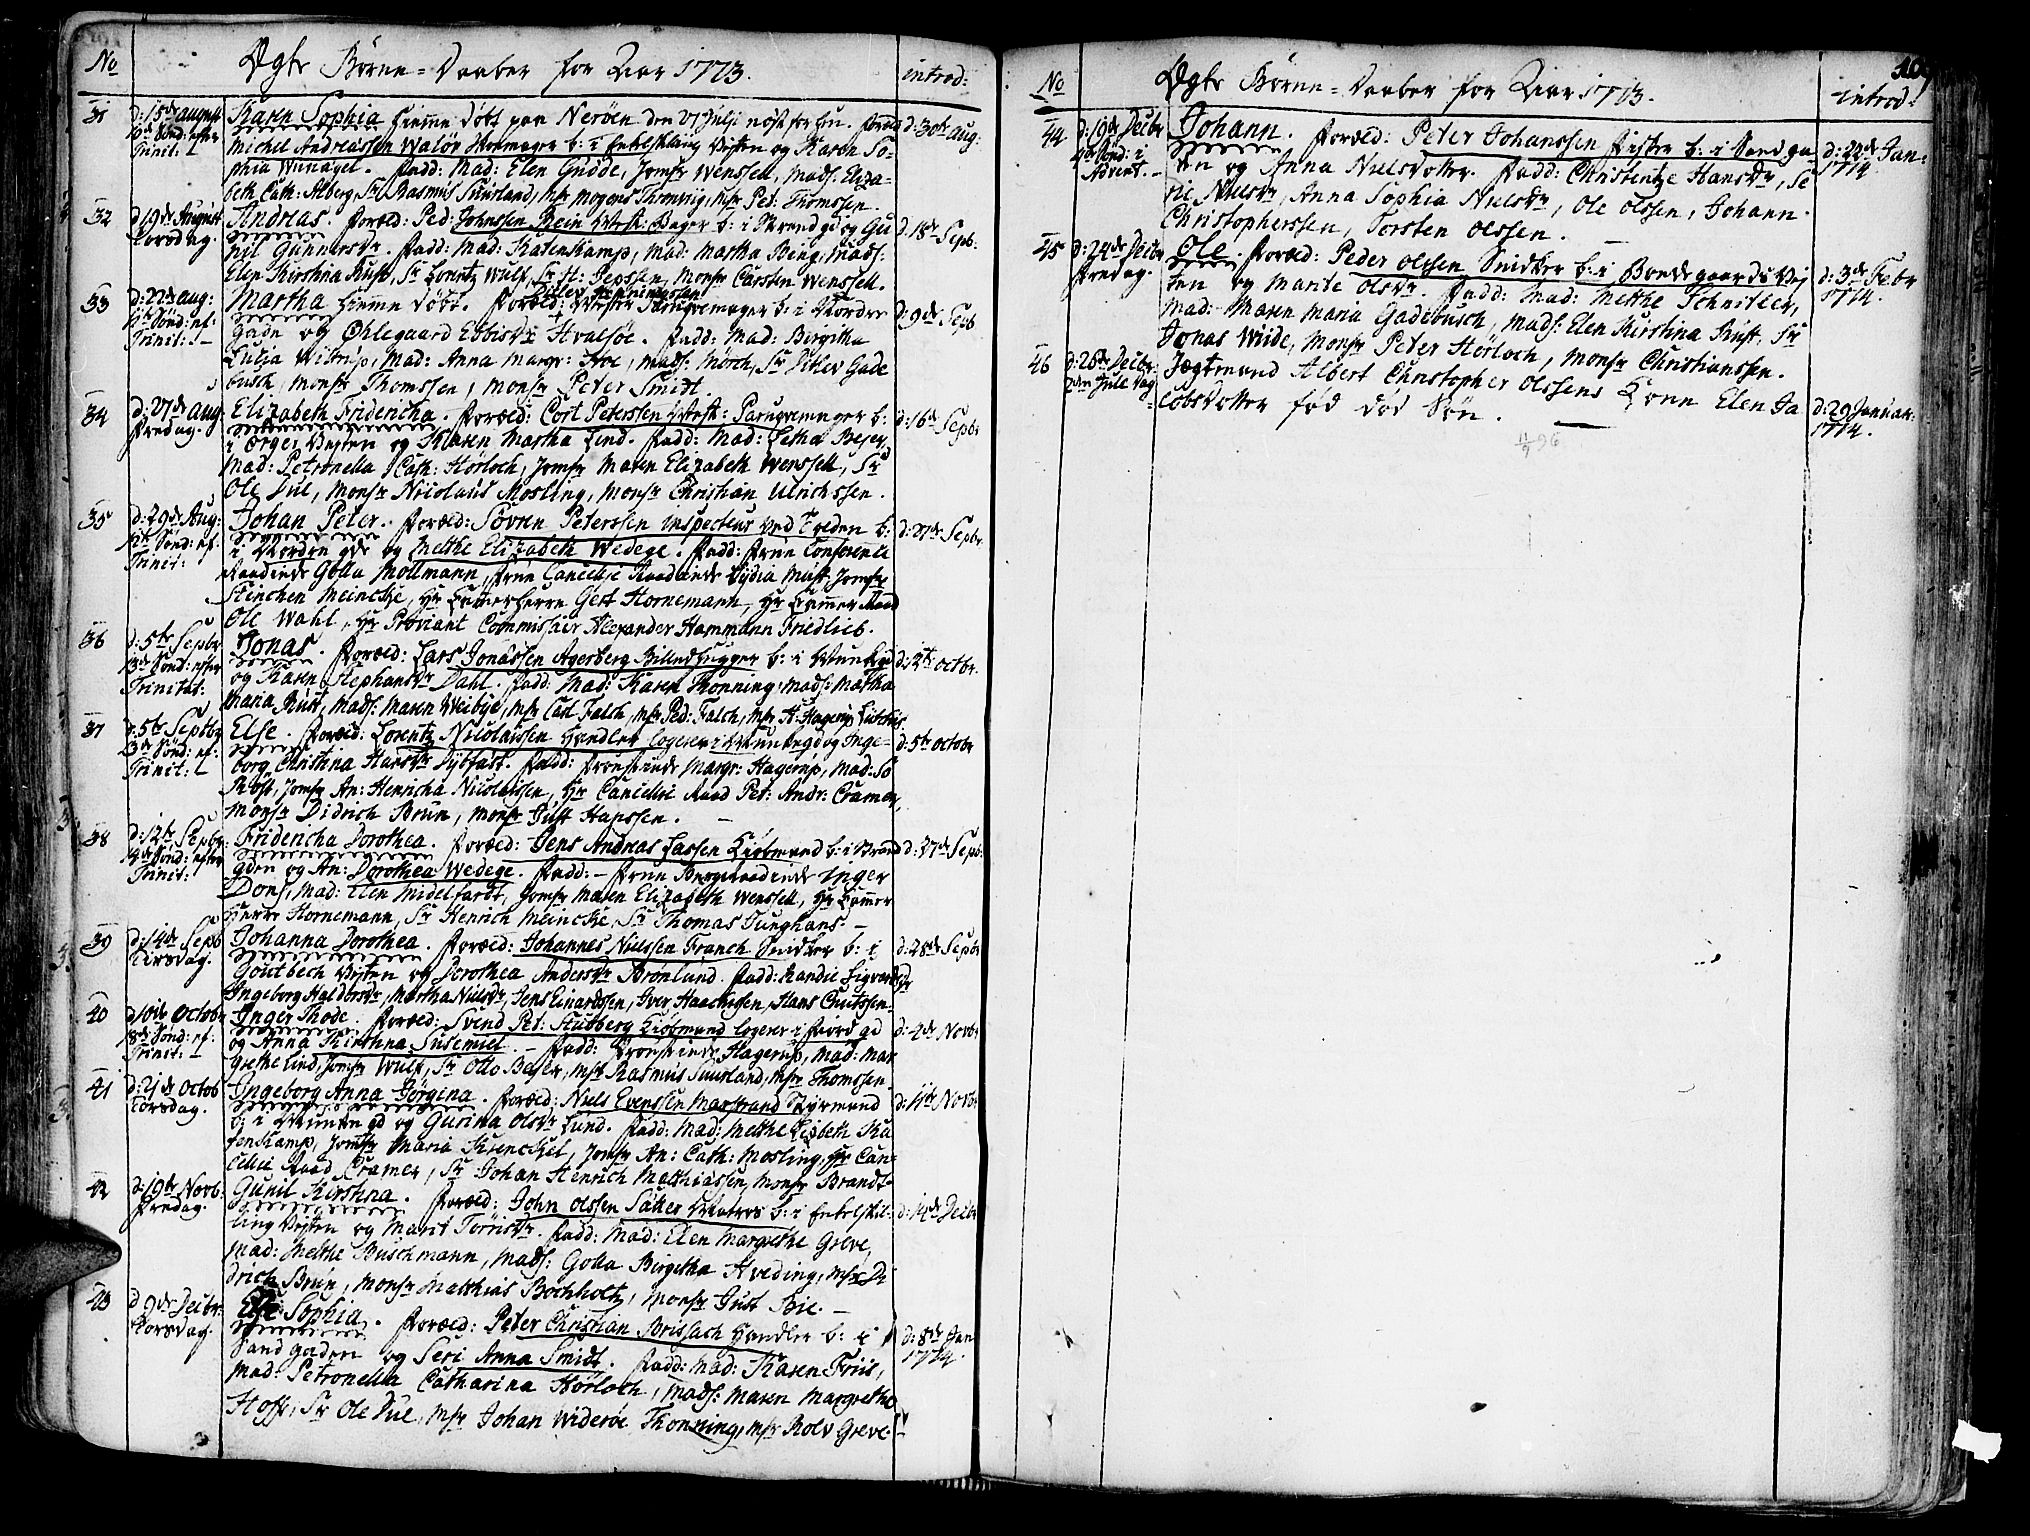 No
Ægte Børne-Daaber for Aar 1773.
introd:
31
d: 15de august
10de Sønd: efter
Trinit:
Karen Sophia hiemme døbt paa Nerøen den 27 Julji nøst for hen. Foræld
Michel Andreassen Waløe b: i Enkelskling Vejten og Karen So-
phia Wunagel. Fadd: Mad: Elen Gudde, Jomfr Wenssell, Mads: Eliza-
beth Cath: Alberg, Sr Rasmus Suurland, Msr Mogens Thonning, Msr Ped: Thomssen.
d: 30te Aug:
32
d: 19de August
Torsdag.
Andreas. Foræld: Ped: Johnssen Bager b: i Strand gd og Gu
nil Gunnersdr. Fadd: Mad: Katenkamp, Mad: Martha Bing, Mads:
Elen Kirstina Rust, Sr Lorentz Wulf, Sr H: Jepssen, Monsr Carsten Wenssell.
d: 18de Sepb:
33
d: 22de aug:
11te Sønd: ef:
Trinit:
Martha hieme døbt. Foræld: Mester Paruqvemager b: i Nordre
Gade og Øhlegaard Ebbisdr Hvalsøe. Fadd: Mad: Birgitha
Lucia Witrup, Mad: Anna Margr: Hoe, Mads: Mørch, Sr Ditlev Gade
busch, Monsr Thomssen, Monsr Peter Smidt.
d: 9de Sepb
34
d: 27de aug
Fredag.
Elizabeth Fridericha. Foræld: Cort Peterssen Mest: Paruqvemager b:
i Ørger Vejten og Karen Martha Lind. Fadd: Mad: Letha Beyer,
Mad: Petronella Cath: Hørloch, Jomfr Maren Elizabeth Wenssell, Sr
Ole Due, Monsr Nicolaus Mosling, Monsr Christian Ulrichssen.
d: 16de Sepbr
35
d: 29de Aug:
12te Sønd: ef.
Trinit:
Johan Peter. Foræld: Søvren Peterssen inspecteur ved b:
i Nordre gde og Mette Elizabeth Wedege. Fadd: Frue Conference
Raadinde Golla Mollmann, Frue Cancellje Raadinde Lydia Must, Jomfr
Stinchen Meincke, Hr Kammerherre Gert Hornemann, Hr Kammer Raad
Ole Wahl, Hr Proviant Commissair Alexander Hammann Friedlieb.
d: 27de Sepbr.
36
d: 5te Sepbr
13de Sønd: efter
Trinitat:
Jonas. Foræld: Lars Jonassen Agerberg Billedhugger b: i Munkgd
og Karen Stephansdr Dahl. Fadd: Mad: Karen Thonning, Mads: Martha
Maria Rust, Mads: Maren Weibye, Msr Carl Falch, Msr Ped: Falch, Msr H: Hagerup
d: 12te Octbr.
37
d: 5te Septbr
13de Sønd: ef.
Trinit:
Else. Foræld: Lorentz Nicolaissen Handler logerer i Munkegd og Inge-
borg Christina Hansdr Dybfast. Fadd: Provstinde Margr: Hagerup, Mad: So
Rost, Jomfr An: Henricha Nicolaissen, Hr Cancellie Raad Pet: Andr: Cramer,
Monsr Didrich Brun, Monsr Just Hanssen.
d: 5te Octobr
38
d: 12te Sepbr:
14de Sønd: efter
Trinit:
Fridericha Dorothea. Foræld: Jens Andreas Lassen Kiøbmand b: i Strand
gden og An: Dorothea Wedege. Fadd: Frue Bergraadinde Inger
Dons, Mad: Elen Midelfardt, Jomfr Maren Elizabeth Wenssell, Hr Kammer
Herre Hornemann, Sr Henrich Meincke, Sr Thomas Junghans.
d: 27de Sepb:
39
d: 14de Sepb
Tirsdag.
Johanna Dorothea. Foræld: Johannes Nielssen Franch Snidker b: i
Goutbech Vejten og Dorothea Andersdr Brønlund. Fadd: Randie Sigvardsdr
Ingeborg Haldorsdr, Martha Nielsdr, Jens Eduardssen, Iver Haachssen, Hans Cnutssen.
d: 28de Sepbr
40
d: 10de Octobr
18de Sønd: ef:
Trinit:
Inger Thode. Foræld: Svend Pet: Studberg Kiøbmand logerer i Fiord gd
og Anna Kirstina Susemiel. Fadd: Provstinde Hagerup, Mad: Mar
grethe Lind, Jomfr Wulf, Sr Otto Beyer, Msr Rasmus Suurland, Msr Thomssen.
d: 2de Novbr
41
d: 21de Octob
Torsdag.
Ingeborg Anna Jørgina. Foræld: Niels Evenssen Marstrand Styrmand
b: i Munke gd og Gurina Olsdr Lund. Fadd: Mad: Mette Lisbeth Ka
tenkamp, Jomfr Maria Krenckel, Jomfr An: Cath: Mosling, Hr Can-
cellie Raad Cramer, Sr Johan Henrich Matthiassen, Monsr Brandt.
d: 11te Novbr
42
d: 19te Novb:
Fredag.
Gunil Kirstina. Foræld: John Olssen Sæter Matros b: i Enkelskil-
ling Vejten og Marit Torrisdr. Fadd: Mad: Elen Margrethe Greve,
Mad: Mette Buschmann, Mads: Golla Birgitha Hveding, Msr Di
drich Brun, Monsr Matthias Bochholtz, Monsr Just Bie.
d: 14de Decbr
43
d 9de Decbr:
Torsdag.
Else Sophia. Foræld: Peter Christian Brissach Handler b: i
Sand gaden og Seri Anna Smidt. Fadd: Mad: Karen Friis,
Mad: Petronella Catharina Hørloch, Mads: Maren Margrethe
Hoff, Sr Ole Due, Msr Johan Widerøe Thonning, Msr Rolv Greve.
d: 8de Jan
1774.
No
Ægte Børne-Daaber for Aar 1773.
introd:
109
44
d: 19de Decbr
4de Sønd: i
Advent.
Johann. Foræld: Peter Johanssen Fisker b: i Sand ga
den og Anna Nielsdotter. Fadd: Christentze Hansdr, Se
rie Nielsdr, Anna Sophia Nielsdr, Ole Olssen, Johann
Christopherssen, Torsten Olssen.
d: 22de Jan-
1774.
45
d: 24de Decbr
Fredag.
Ole. Foræld: Peder Olssen Snidker b: i Bondegaards Vej
ten og Marite Olsdr. Fadd: Mad: Mette Schnitler,
Mad: Maren Maria Gadebusch, Mads: Elen Kirstina Rust, Sr
Jonas Wiide, Monsr Peter Hørloch, Monsr Christianssen.
d: 3de Febr
1774.
46
d: 26de Decbr:
2den Jule dag
Jægtmand Albert Christopher Olssens Kone Elen Ja
cobsdotter fød død Søn.
d: 29 Januar:
1774.